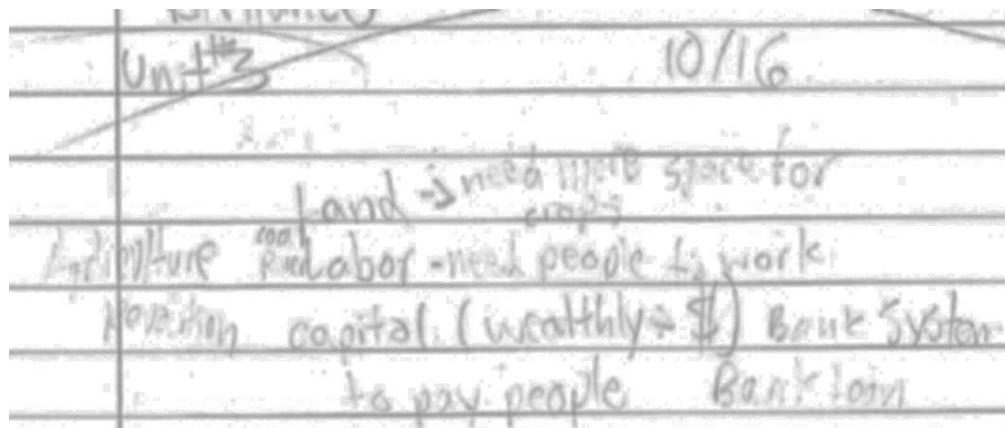 Unit #3 10/16
Land → need more space for
crops
Agriculture Labor - need people to work
capital (wealthly → $) Bank System
to pay people Bank loin